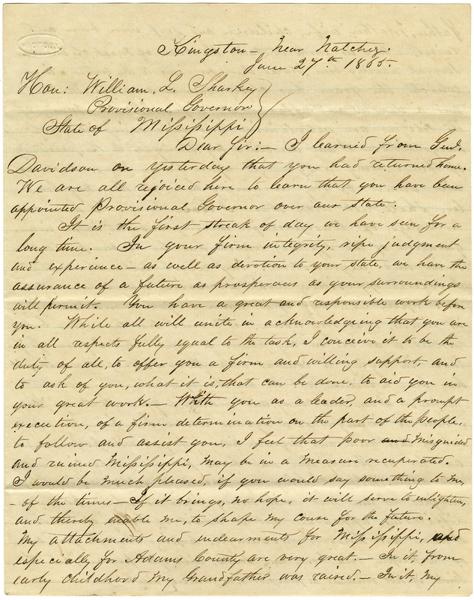 Kingston—, Near Natchez.
June 27th 1865.
Hon: William, L. Sharkey
Provisional Governor
State of Mississippi
Dear Sir:— I learned from Genl.
Davidson on yesterday that you had returned home.
We are all rejoiced here to learn that you have been
appointed Provisional Governor over our State.
It is the first streak of day we have seen for a
long time. In your firm integrity, ripe judgment
and experience— as well as devotion to your state, we have the
assurance of a future as prosperous as your surroundings
will permit. You have a great and responsible work before
you. While all will unite in acknowledging that you are
in all respects fully equal to the task, I conceive it to be the
duty of all, to offer you a firm and willing support, and
to ask of you, what it is, that can be done, to aid you in
your great work.— With you as a leader, and a prompt
execution, of a firm determination on the part of the people,
to follow and assist you, I feel that poor and misguided
and ruined Mississippi, may be in a measure recuperated.
I would be much pleased, if you would say something to me,
— of the times— If it brings, no hope, it will serve to enlighten,
and thereby enable me, to shape my course for the future.
My attachments and endearments for Mississippi, and
especially for Adams County are very great.— In it, from
early childhood my Grandfather was raised.— In it, my